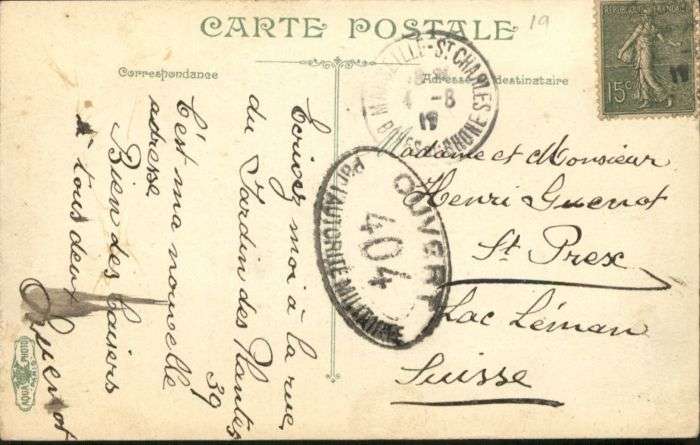 CARTE POSTALE
19
Correspondance
Adresse destinataire
RÉPUBLIQUE FRANÇAISE
15c
MARSEILLE-ST CHARLES
4 -8
BOUCHES-DU-RHONE
OUVERT
404
PAR L'AUTORITÉ MILITAIRE
Madame et Monsieur
Henri Guenot
St Prex
Lac Léman
Suisse
Ecrivez moi à la rue
du Jardin des Plantes
39
C'est ma nouvelle
adresse
Bien des baisers
à tous deux
Guenot
AQUA PHOTO
PARIS